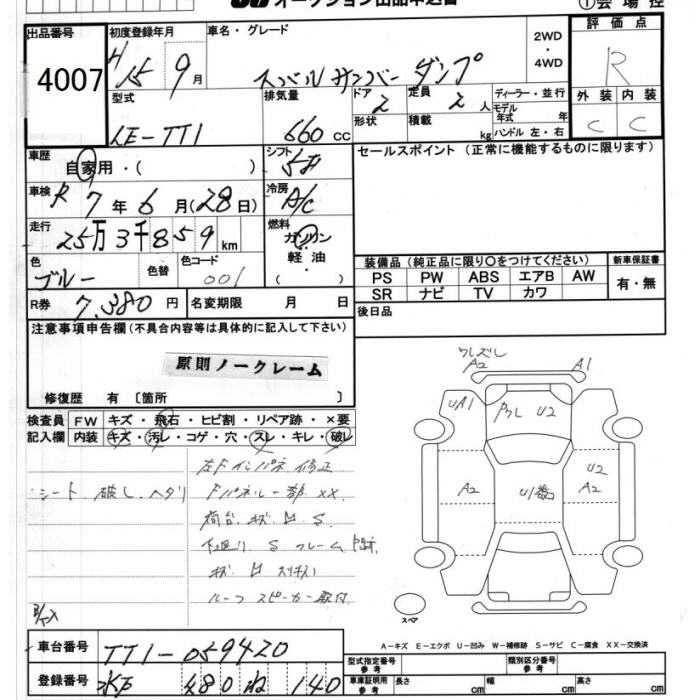 オークション出品申込書 ①会場控
出品番号 4007
初度登録年月 H15 9月
車名・グレード スバル サンバー ダンプ
2WD・4WD
評価点 R
型式 LE-TT1
排気量 660 CC
ドア 2 形状
定員 2人 積載 kg
ディーラー・並行
モデル年式 年
ハンドル 左・右
外装 C 内装 C
車歴 自家用・( )
シフト 5F
セールスポイント (正常に機能するものに限ります)
車検 R7年6月(28日)
冷房 A/C
走行 25万3千859km
燃料 ガソリン・軽油・( )
色 ブルー 色替 色コード 001
装備品 (純正品に限り○をつけてください) 新車保証書
PS PW ABS エアB AW 有・無
SR ナビ TV カワ
R券 7,380円 名変期限 月 日
後日品
注意事項申告欄(不具合内容等は具体的に記入して下さい)
原則ノークレーム
修復歴 有 〔箇所 〕
検査員記入欄 FW キズ・飛石・ヒビ割・リペア跡・×要
内装 キズ・汚レ・コゲ・穴・スレ・キレ・破レ
左Fインパネ修正
シート 破レ ヘタリ Fパネル一部XX
荷台 キズ U S
下廻り S フレーム
キズ U
ルーフ スピーカー取付
ワレズレ
A2 A1
UA1 U2
A2 U1 U2
A2
スペア
A-キズ E-エクボ U-凹み W-補修跡 S-サビ C-腐食 XX-交換済
車台番号 TT1-059420
型式指定番号 参考 類別区分番号 参考
登録番号 水戸 480 ね 140
車庫証明用 参考 長さ cm 幅 cm 高さ cm